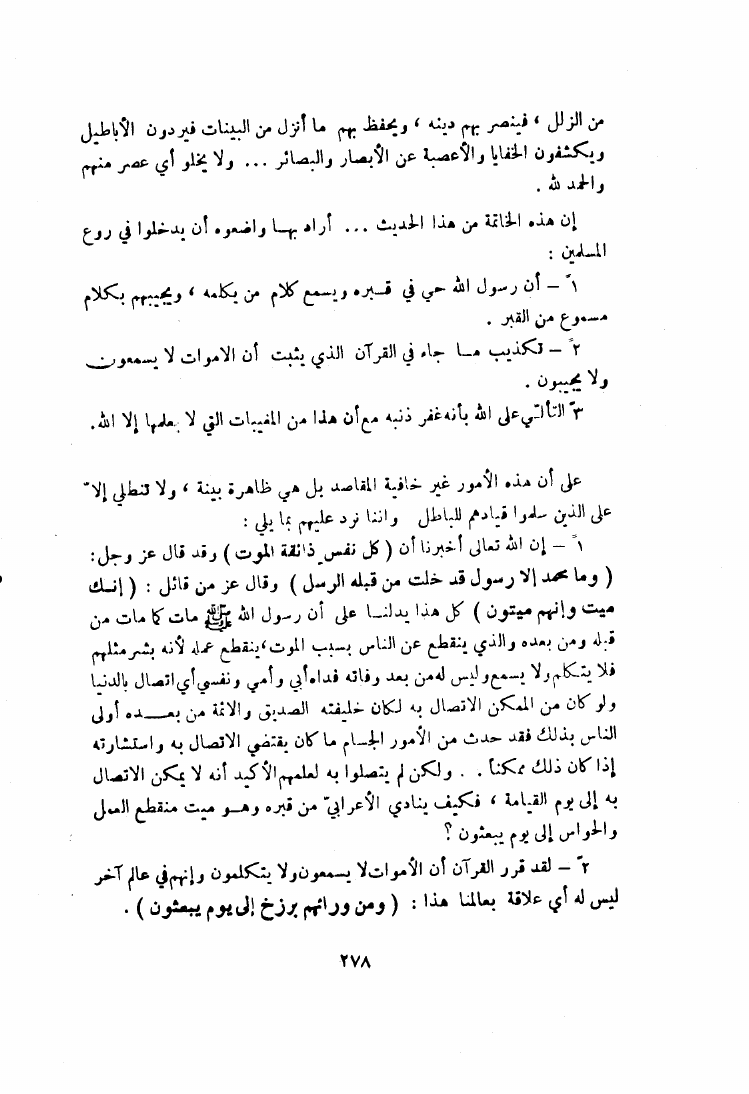 من الزلل ، فينصر بهم دينه ، ويحفظ بهم ما أنزل من البينات فيردون الأباطيل
ويكشفون الخفايا والأعصبة عن الأبصار والبصائر ... ولا يخلو أي عصر منهم
والحمد لله .
إن هذه الخاتمة من هذا الحديث ... أراد بها واضعوه أن يدخلوا في روع
المسلمين :
١ً – أن رسول الله حي في قبره ويسمع كلام من يكلمه ، ويجيبهم بكلام
مسموع من القبر .
٢ً – تكذيب ما جاء في القرآن الذي يثبت أن الاموات لا يسمعون
ولا يجيبون .
٣ً التألّي على الله بأنه غفر ذنبه مع أن هذا من المغيبات التي لا يعلمها إلا الله.
على أن هذه الأمور غير خافية المقاصد بل هي ظاهرة بينة ، ولا تنطلي إلاّ
على الذين سلموا قيادهم للباطل واننا نرد عليهم بما يلي :
١ً – إن الله تعالى أخبرنا أن ( كل نفس ذائقة الموت ) وقد قال عز وجل :
( وما محمد إلا رسول قد خلت من قبله الرسل ) وقال عز من قائل : ( إنك
ميت وإنهم ميتون ) كل هذا يدلنا على أن رسول الله ﷺ مات كما مات من
قبله ومن بعده والذي ينقطع عن الناس بسبب الموت ، ينقطع عمله لأنه بشر مثلهم
فلا يتكلم ولا يسمع وليس له من بعد وفاته فداه أبي وأمي ونفسي أي اتصال بالدنيا
ولو كان من الممكن الاتصال به لكان خليفته الصديق والائمة من بعده أولى
الناس بذلك فقد حدث من الأمور الجسام ما كان يقتضي الاتصال به واستشارته
إذا كان ذلك ممكناً . . ولكن لم يتصلوا به لعلمهم الأكيد أنه لا يمكن الاتصال
به إلى يوم القيامة ، فكيف ينادي الأعرابيّ من قبره وهو ميت منقطع العمل
والحواس إلى يوم يبعثون ؟
٢ً – لقد قرر القرآن أن الأموات لا يسمعون ولا يتكلمون وإنهم في عالم آخر
ليس له أي علاقة بعالمنا هذا : ( ومن ورائهم برزخ إلى يوم يبعثون ) .
٢٧٨